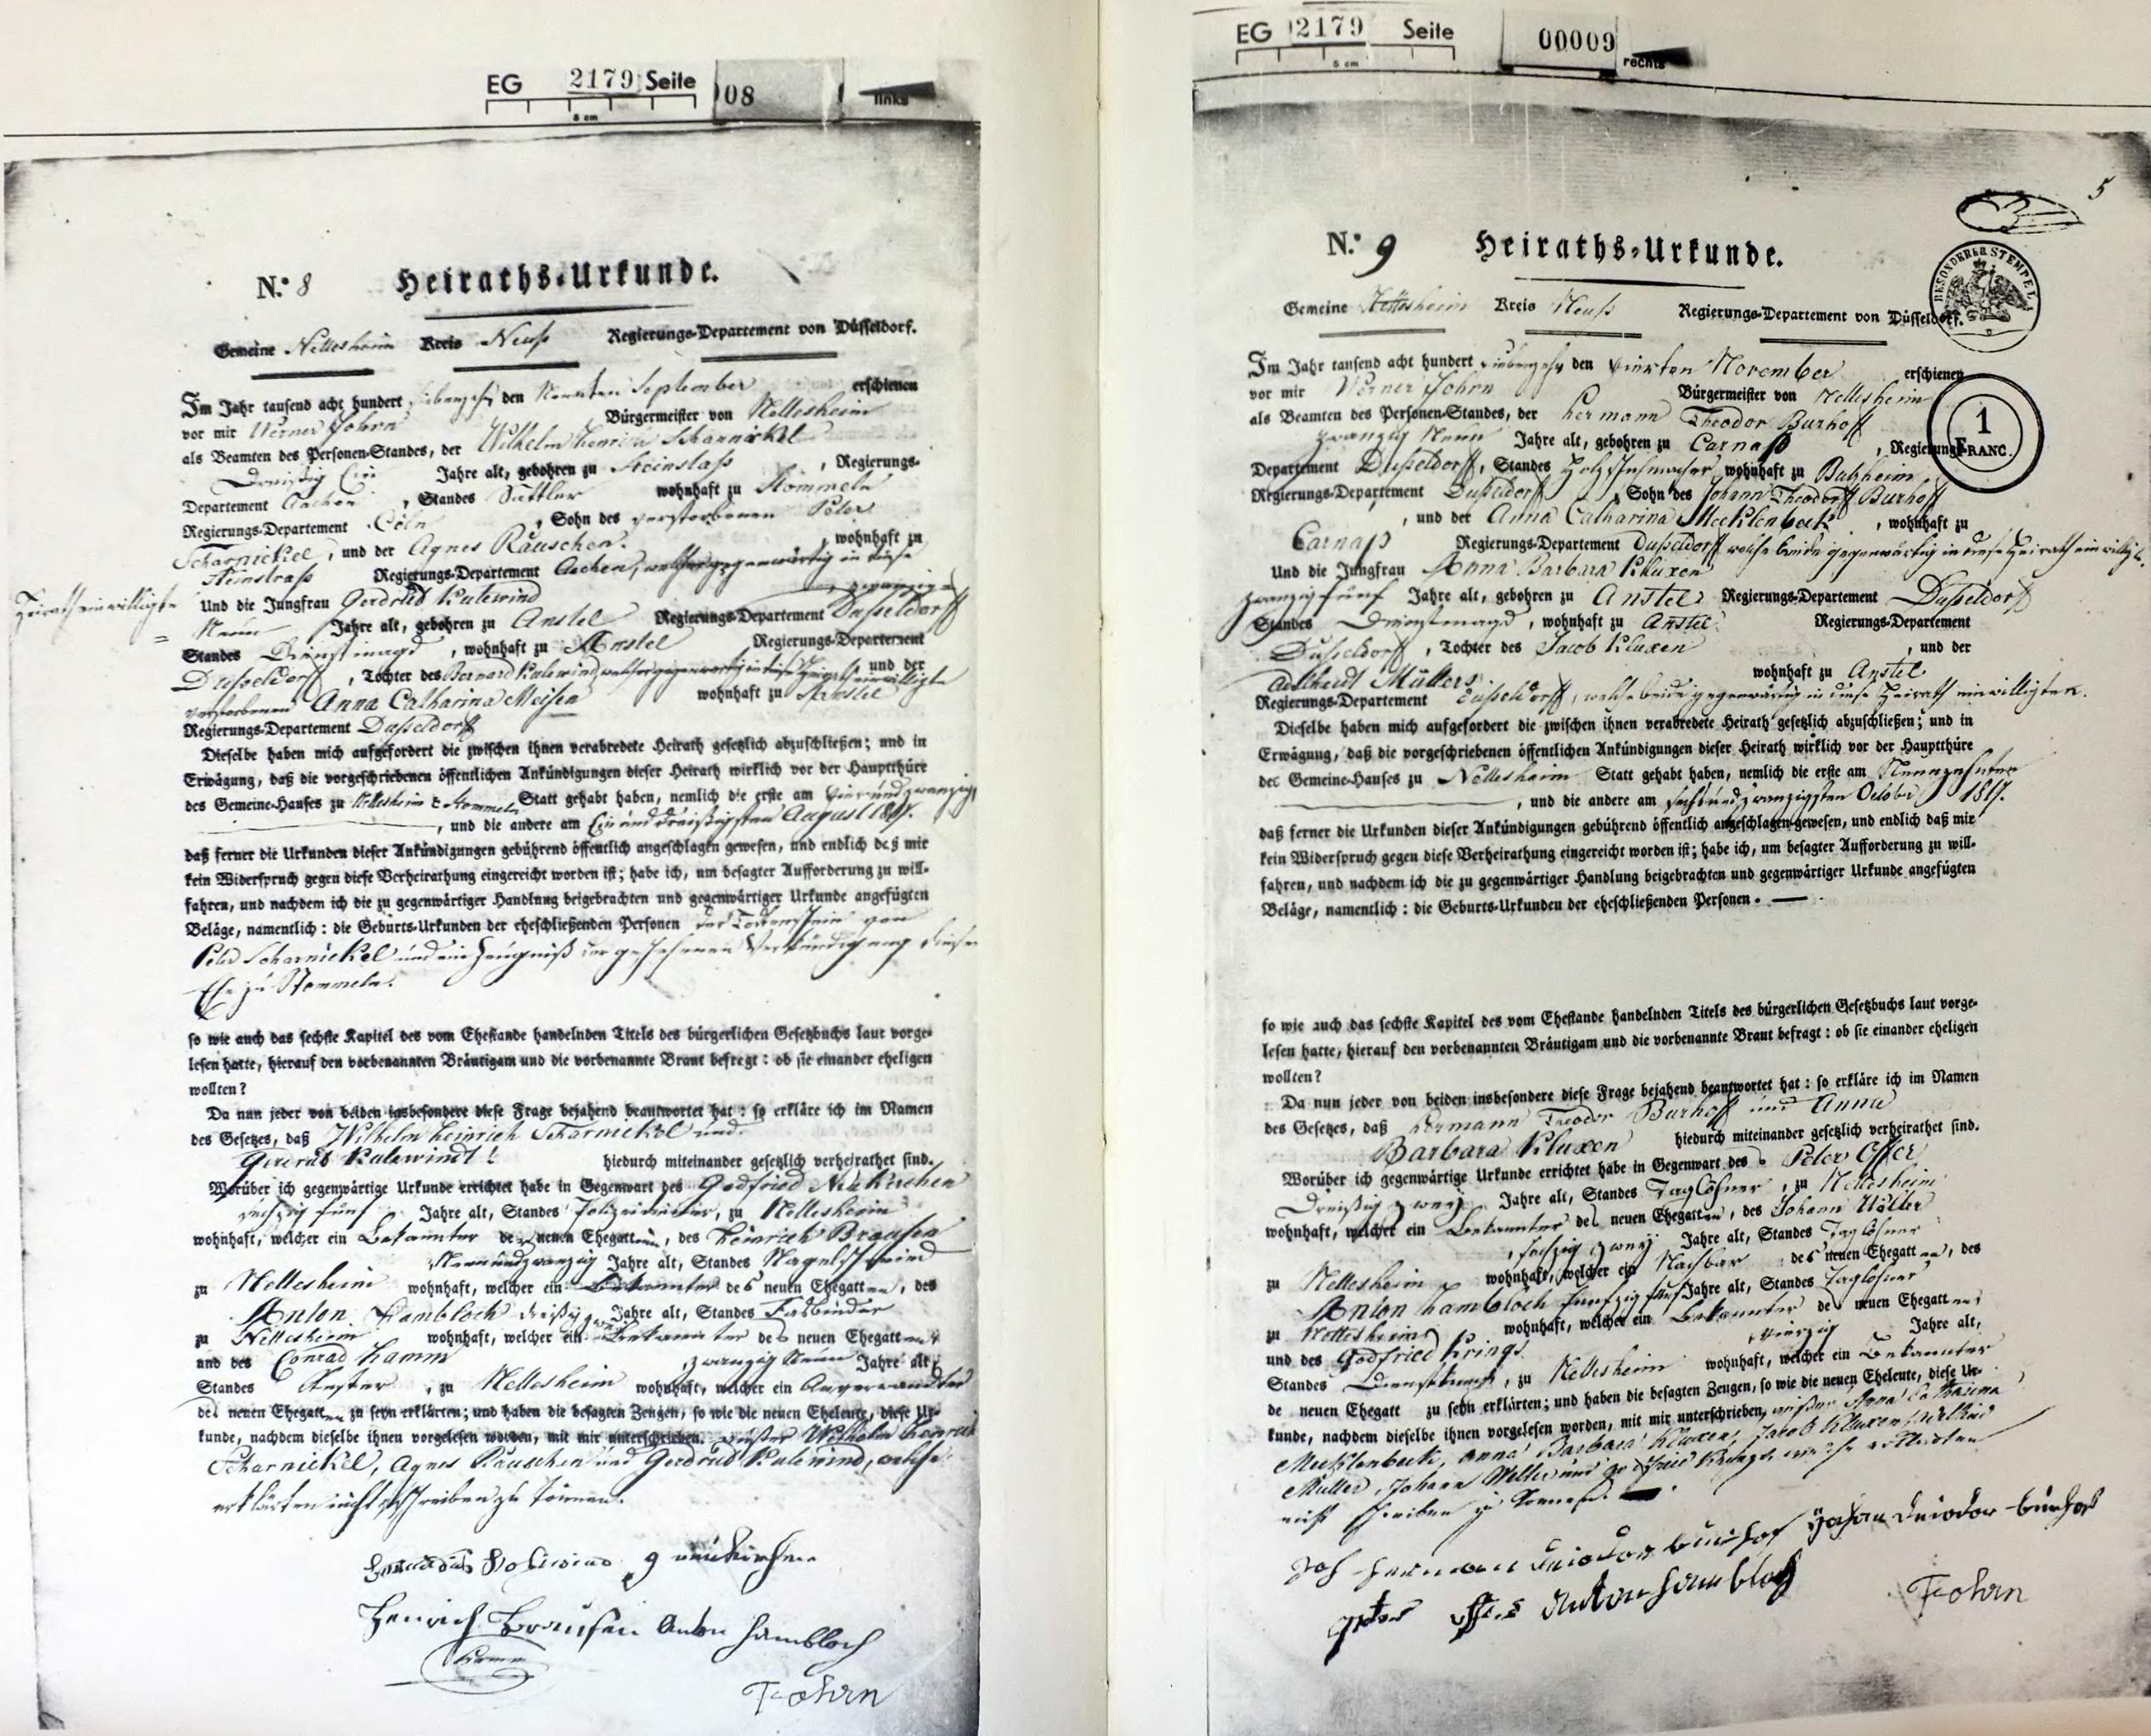 EG 2179 Seite 08 links
5 cm
N.º 8 Heiraths-Urkunde.
Gemeine Nettesheim Kreis Neuss Regierungs-Departement von Düsseldorf.
Im Jahr tausend acht hundert siebenzehn den Neunten September erschienen
vor mir Werner Fohrn Bürgermeister von Nettesheim
als Beamten des Personen-Standes, der Wilhelm Henrich Scharnickel
Dreißig Ein Jahre alt, gebohren zu Steinstass, Regierungs-
Departement Aachen, Standes Sattler wohnhaft zu Stommeln
Regierungs-Departement Cöln, Sohn des verstorbenen Peter
Scharnickel, und der Agnes Rauschen. , wohnhaft zu
Steinstrass Regierungs-Departement Aachen, welche gegenwärtig in diese
Heirath einwilligte
Und die Jungfrau Gerdrud Kulewind zwanzig
Neun Jahre alt, gebohren zu Anstel Regierungs-Departement Dusseldorff
Standes Dienstmagd, wohnhaft zu Anstel Regierungs-Departement
Dusseldorff, Tochter des Bernard Kulewind welcher gegenwärtig in diese Heirath einwilligte und der
verstorbenen Anna Catharina Meisen wohnhaft zu Anstel
Regierungs-Departement Dusseldorff
Dieselbe haben mich aufgefordert die zwischen ihnen verabredete Heirath gesetzlich abzuschließen; und in
Erwägung, daß die vorgeschriebenen öffentlichen Ankündigungen dieser Heirath wirklich vor der Hauptthüre
des Gemeine-Hauses zu Nettesheim & Stommeln Statt gehabt haben, nemlich die erste am Vierundzwanzig
, und die andere am Ein und dreißigsten August 1817.
daß ferner die Urkunden dieser Ankündigungen gebührend öffentlich angeschlagen gewesen, und endlich daß mir
kein Widerspruch gegen diese Verheirathung eingereicht worden ist; habe ich, um besagter Aufforderung zu will-
fahren, und nachdem ich die zu gegenwärtiger Handlung beigebrachten und gegenwärtiger Urkunde angefügten
Beläge, namentlich: die Geburts-Urkunden der eheschließenden Personen der Todenschein von
Peter Scharnickel und ein Zeugniß der geschehenen Verkündigung dieser
Ehe zu Stommeln.
so wie auch das sechste Kapitel des vom Ehestande handelnden Titels des bürgerlichen Gesetzbuchs laut vorge-
lesen hatte, hierauf den vorbenannten Bräutigam und die vorbenannte Braut befragt: ob sie einander eheligen
wollten?
Da nun jeder von beiden insbesondere diese Frage bejahend beantwortet hat: so erkläre ich im Namen
des Gesetzes, daß Wilhelm Heinrich Scharnickel und
Gerdrud Kulewindt hiedurch miteinander gesetzlich verheirathet sind.
Worüber ich gegenwärtige Urkunde errichtet habe in Gegenwart des Godfried Neukirchen
sechzig fünf Jahre alt, Standes Polizeidiener, zu Nettesheim
wohnhaft, welcher ein Bekannter der neuen Ehegatten, des Heinrich Brausen
Neunundzwanzig Jahre alt, Standes Nagelschmied
zu Nettesheim wohnhaft, welcher ein Bekannter des neuen Ehegatten, des
Anton Hambloch dreißig zwei Jahre alt, Standes Fasbinder
zu Nettesheim wohnhaft, welcher ein Bekannter des neuen Ehegatten
und des Conrad Hamm, zwanzig Neun Jahre alt,
Standes, zu Nettesheim wohnhaft, welcher ein Anverwandter
des neuen Ehegatten zu seyn erklärten; und haben die besagten Zeugen, so wie die neuen Eheleute, diese Ur-
kunde, nachdem dieselbe ihnen vorgelesen worden, mit mir unterschrieben. außer Wilhelm Henrich
Scharnickel, Agnes Rauschen und Gerdrud Kulewind, welche
erklärten nicht schreiben zu können.
g neukirchen
Henrich Brausen Anton Hambloch
Hamm
Fohrn
EG 2179 Seite 00009 rechts
5 cm
5
N.º 9 Heiraths-Urkunde.
BESONDERER STEMPEL
Gemeine Nettesheim Kreis Neuss Regierungs-Departement von Düsseldorf.
Im Jahr tausend acht hundert siebenzehn den vierten November erschienen
vor mir Werner Fohrn Bürgermeister von Nettesheim
1 FRANC.
als Beamten des Personen-Standes, der Hermann Theodor Burhoff
zwanzig Neun Jahre alt, gebohren zu Carnap, Regierungs-
Departement Dusseldorff, Standes Holzschumacher wohnhaft zu Butzheim
Regierungs-Departement Dusseldorff, Sohn des Johann Theodorff Burhoff
, und der Anna Catharina Mecklenbeck, wohnhaft zu
Carnap Regierungs-Departement Dusseldorff welche beide gegenwärtig in diese Heirath einwilligt.
Und die Jungfrau Anna Barbara Kluxen
zwanzig fünf Jahre alt, gebohren zu Anstel Regierungs-Departement Dusseldorff
Standes Dienstmagd, wohnhaft zu Anstel Regierungs-Departement
Dusseldorff, Tochter des Jacob Kluxen, und der
Adelheid Müllers wohnhaft zu Anstel
Regierungs-Departement Dusseldorff, welche beide gegenwärtig in diese Heirath einwilligten.
Dieselbe haben mich aufgefordert die zwischen ihnen verabredete Heirath gesetzlich abzuschließen; und in
Erwägung, daß die vorgeschriebenen öffentlichen Ankündigungen dieser Heirath wirklich vor der Hauptthüre
des Gemeine-Hauses zu Nettesheim Statt gehabt haben, nemlich die erste am Neunzehnten
, und die andere am sechsundzwanzigsten October 1817.
daß ferner die Urkunden dieser Ankündigungen gebührend öffentlich angeschlagen gewesen, und endlich daß mir
kein Widerspruch gegen diese Verheirathung eingereicht worden ist; habe ich, um besagter Aufforderung zu will-
fahren, und nachdem ich die zu gegenwärtiger Handlung beigebrachten und gegenwärtiger Urkunde angefügten
Beläge, namentlich: die Geburts-Urkunden der eheschließenden Personen.
so wie auch das sechste Kapitel des vom Ehestande handelnden Titels des bürgerlichen Gesetzbuchs laut vorge-
lesen hatte, hierauf den vorbenannten Bräutigam und die vorbenannte Braut befragt: ob sie einander eheligen
wollten?
Da nun jeder von beiden insbesondere diese Frage bejahend beantwortet hat: so erkläre ich im Namen
des Gesetzes, daß Hermann Teodor Burhoff und Anna
Barbara Kluxen hiedurch miteinander gesetzlich verheirathet sind.
Worüber ich gegenwärtige Urkunde errichtet habe in Gegenwart des Peter Offer
Dreißig zwey Jahre alt, Standes Taglöhner, zu Nettesheim
wohnhaft, welcher ein Bekannter des neuen Ehegatten, des Johann Wöller
, sechzig zwey Jahre alt, Standes Taglöhner
zu Nettesheim wohnhaft, welcher ein Nachbar des neuen Ehegatten, des
Anton Hambloch fünfzig fünf Jahre alt, Standes Taglöhner
zu Nettesheim wohnhaft, welcher ein Bekannter des neuen Ehegatten,
und des Godfried Krings, vierzig Jahre alt,
Standes Dienstknecht, zu Nettesheim wohnhaft, welcher ein Bekannter
de neuen Ehegatt zu seyn erklärten; und haben die besagten Zeugen, so wie die neuen Eheleute, diese Ur-
kunde, nachdem dieselbe ihnen vorgelesen worden, mit mir unterschrieben, außer Anna Catharina
Mecklenbeck, Anna Barbara Kluxen, Jacob Kluxen,
Müller, Johann Wöller und Godfried Krings, welche erklärten
nicht schreiben zu können.
Joh Herman
Anton Hambloch
Fohrn